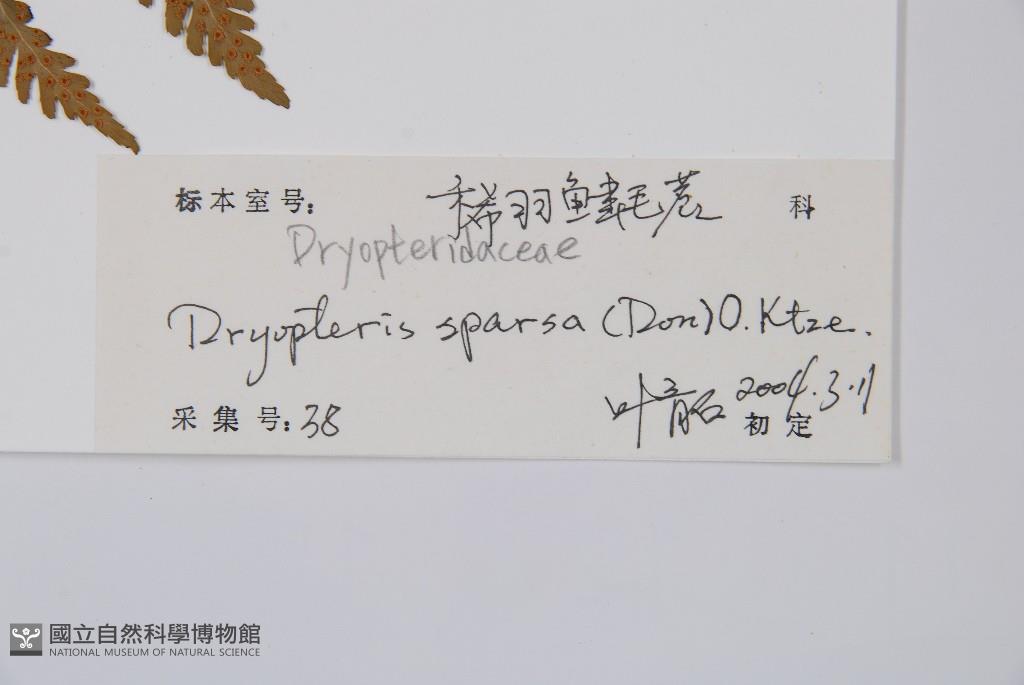 标本室号: 稀羽鱗毛蕨 科
Dryopteridaceae
Dryopteris sparsa (Don) O. Ktze.
采集号: 38 叶 2004.3.11
初定
國立自然科學博物館
NATIONAL MUSEUM OF NATURAL SCIENCE